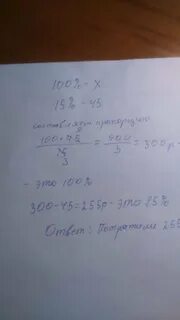 100% - х
15% - 45
составляем пропорцию
100 • 45 / 15 = 900 / 3 = 300р -
- это 100%
300 - 45 = 255р - это 85%
Ответ: Потратили 255